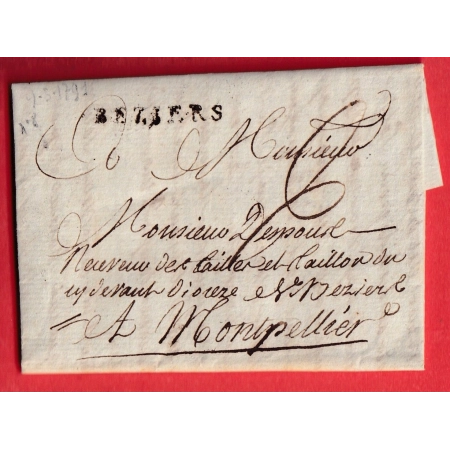 9-3-1791
BEZIERS
A Monsieur
Monsieur
Receveur des tailles et taillon du
cy devant Dioceze de Bezier
A Montpellier